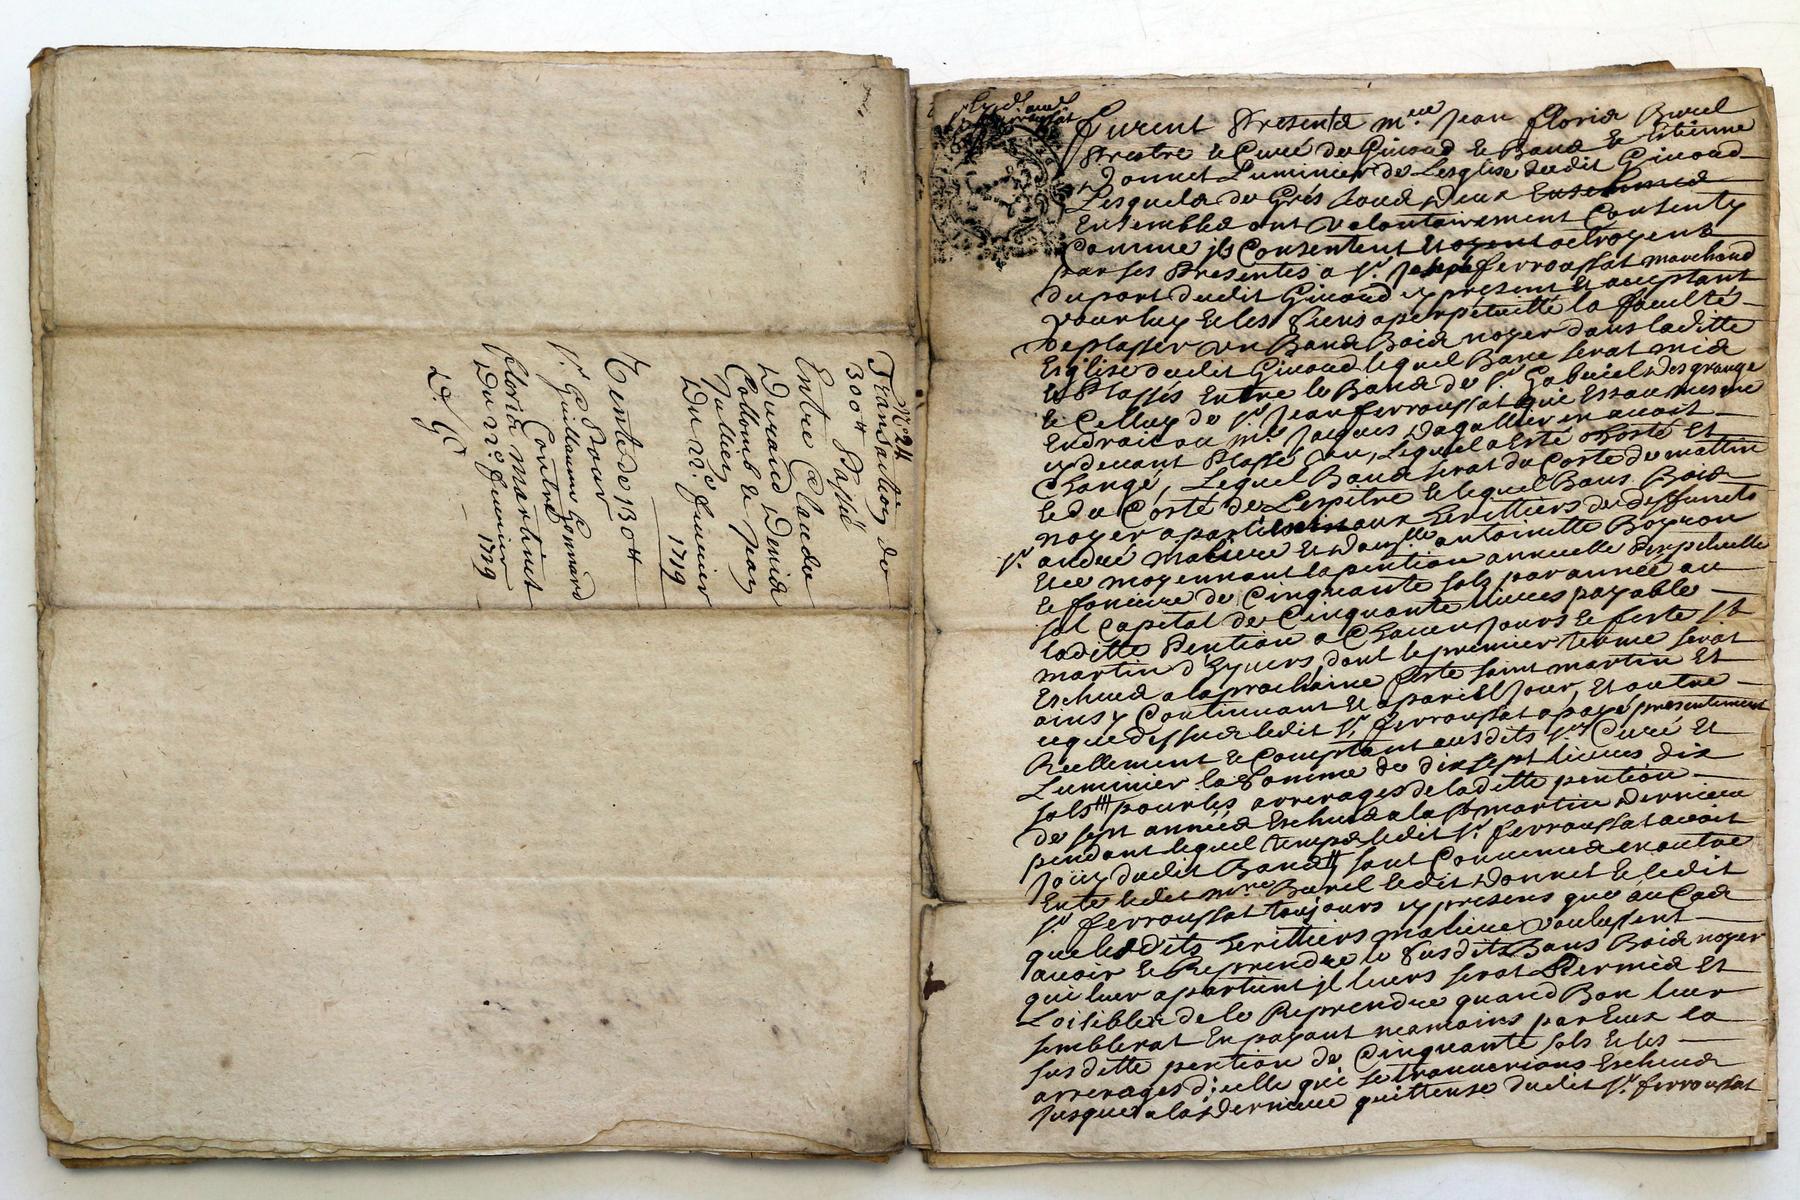 N.° 24
Transaction de
300 ₶ Passé
Entre Claude
Durand Denis
Collomb & Jean
Jullien
Du 22.e Januier
1719
Vente de 130 ₶
Pour
Sr. Guillaume Gonnard
Contre
floris martinet
Du 22.e Januier 1719
D. G.
Furent Presents mre Jean floris Burel
Prestre & Curé de Giuord & Estienne
Donnet Luminier de Lesglise dudit Giuord
Lesquels de Grés tous deux
Ensembles ont volontairement Consenty
Comme jls Consentent & octroyent
par ses Presentes a Sr. ferroussat marchand
du port dudit Giuord y present & acceptant
pour luy & les siens a perpetuitté la faculté
De plasser un Banc Bois noyer dans laditte
Esglise dudit Giuord lequel Banc serat mis
& Plassés Entre le Banc de Sr. Gabriel Desgrange
& Celluy de Sr. Jean ferroussat qui Est au mesme
Endroit ou mre Jacques Dagallier en auoit
cy deuant Plassé un, Lequel a Esté osté Et
Changé, Lequel Banc serat du Costé du mattin
& du Costé de Lespitre & lequel Banc Bois
noyer apartient aux Heritiers de deffuncts
Sr. andré maliere Et damlle antoinette Boyron
Et ce moyennant la pention annuelle Perpetuelle
& fonciere de Cinquante sols par année au
sol Capital de Cinquante liures payable
laditte Pention a Chacun Jours & feste St
martin d'hyuers, dont le premier terme serat
Escheud a la prochaine feste saint martin Et
ainsy Continuant & a pareil Jour, Et outre
ce que dessus ledit Sr. ferroussat a payé presentement
Reellement & Comptant ausdits Srs Curé Et
Luminier la Somme de dix sept liures dix
sols pour les arrerages de laditte pention
de sept années Escheus a la St martin Derniere
pendant lequel temps ledit Sr. ferroussat auoit
Jouy dudit Banc sont Conuenus en outre
Entre ledit mre Burel ledit Donnet & ledit
Sr ferroussat toujours y presens que au Cas
que lesdits heritiers maliere voulussent
auoir & Reprendre le susdits Banc Bois noyer
qui leur apartient jl leurs serat Permis Et
Loisibles de le Reprendre quand Bon leur
semblerat En payant neamoins par Eux la
susditte pention de Cinquante sols & les
arrerages d'icelle qui se trouuerions Escheus
Jusques a la Derniere quittense dudit Sr. ferroussat